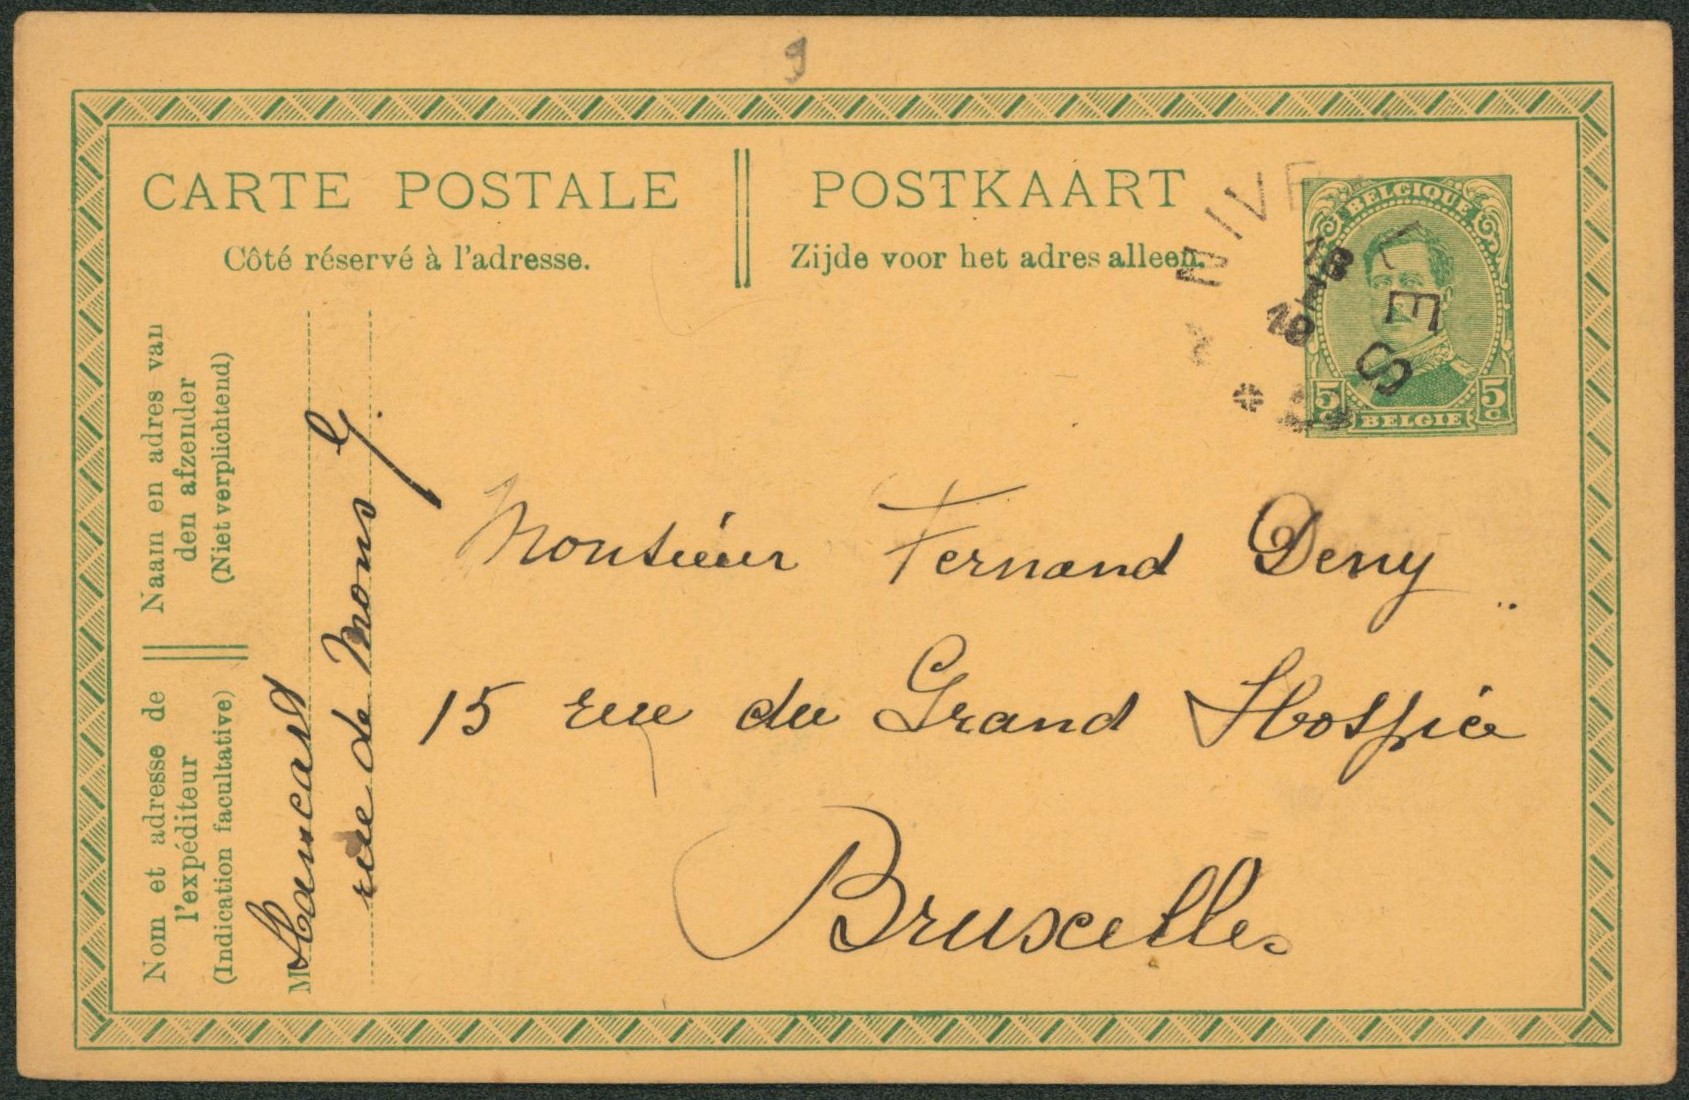 9
CARTE POSTALE
Côté réservé à l'adresse.
POSTKAART
Zijde voor het adres alleen.
NIVELLES
18
19
BELGIQUE
5c
5c
BELGIE
Naam en adres van
den afzender
(Niet verplichtend)
Nom et adresse de
l'expéditeur
(Indication facultative)
M Hancart G.
rue de Mons
Monsieur Fernand Deny
15 rue du Grand Hospice
Bruxelles